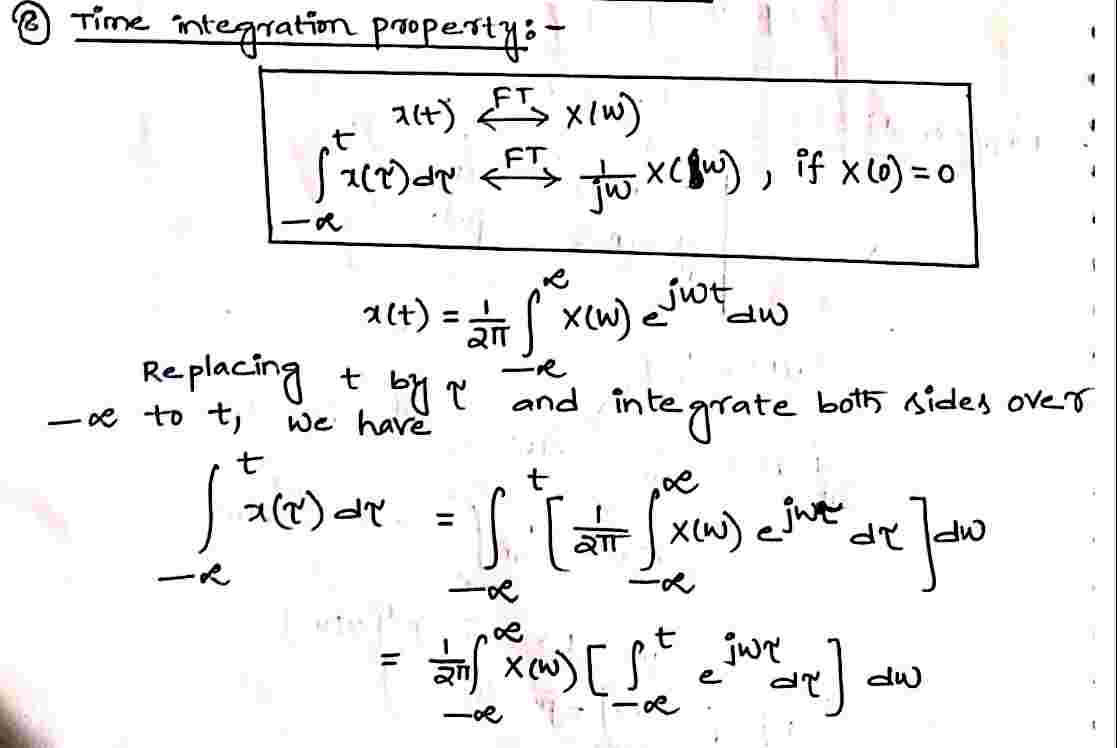 ⑧ Time integration property:-
x(t) <-FT-> X(w)
∫_{-∞}^{t} x(τ)dτ <-FT-> 1/jw X(w) , if X(0)=0
x(t) = 1/2π ∫_{-∞}^{∞} X(w) e^{jwt} dw
Replacing t by τ and integrate both sides over
-∞ to t, we have
∫_{-∞}^{t} x(τ) dτ = ∫_{-∞}^{t} [ 1/2π ∫_{-∞}^{∞} X(w) e^{jwτ} dτ ] dw
= 1/2π ∫_{-∞}^{∞} X(w) [ ∫_{-∞}^{t} e^{jwτ} dτ ] dw